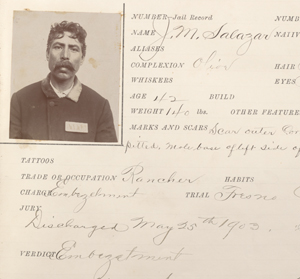 NUMBER Jail Record
NAME J. M. Salazar NATIV
ALIASES
COMPLEXION HAIR
WHISKERS EYES
AGE 42 BUILD
WEIGHT 140 lbs. OTHER FEATURE
MARKS AND SCARS Scar outer Cor
pitted. Mole base of left side of
TATTOOS
TRADE OR OCCUPATION Rancher HABITS
CHARGE Embezelment TRIAL Fresno
JURY
Discharged May 25th 1903.
VERDICT Embezelment